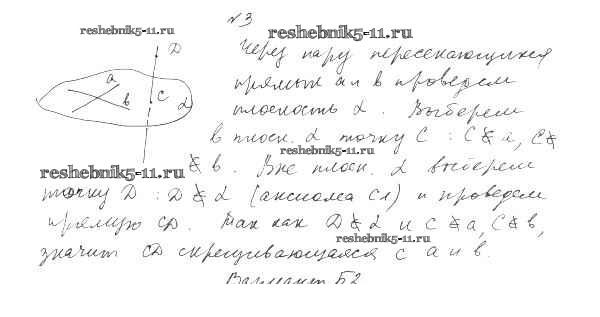 №3
reshebnik5-11.ru
reshebnik5-11.ru
D
Через пару пересекающихся
a
прямых a и b проведем
b
C
α
плоскость α. Выберем
в плоск. α точку C : C ∉ a, C ∉
reshebnik5-11.ru
∉ b. Вне плоск. α выберем
reshebnik5-11.ru
точку D : D ∉ α (аксиома C1) и проведем
прямую CD. Так как D ∉ α и C ∉ a, C ∉ b,
reshebnik5-11.ru
значит CD скрещивающаяся с a и b.
Вариант Б2